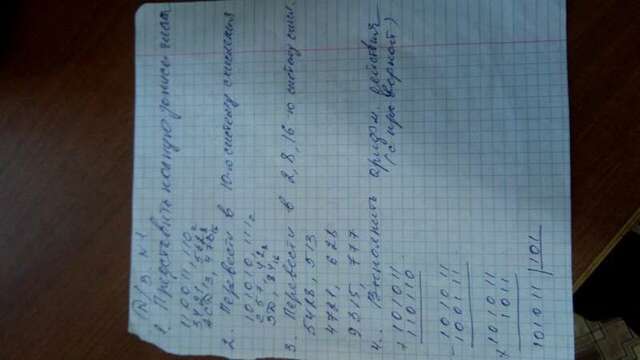 Д/З. №1
1. Представить полную запись числа
110011,110₂
5421, 542₈
ACD13, 478₁₆
2. Перевести в 10-ю систему счисления
101010, 111₂
257, 42₈
3D, 84₁₆
3. Перевести в 2,8,16-ю систему счисл.
5428, 513
4721, 628
9315, 777
4. Выполнить арифм. действия
(с проверкой)
+ 101011
110110
- 101011
100111
× 101011
1011
101011 | 101